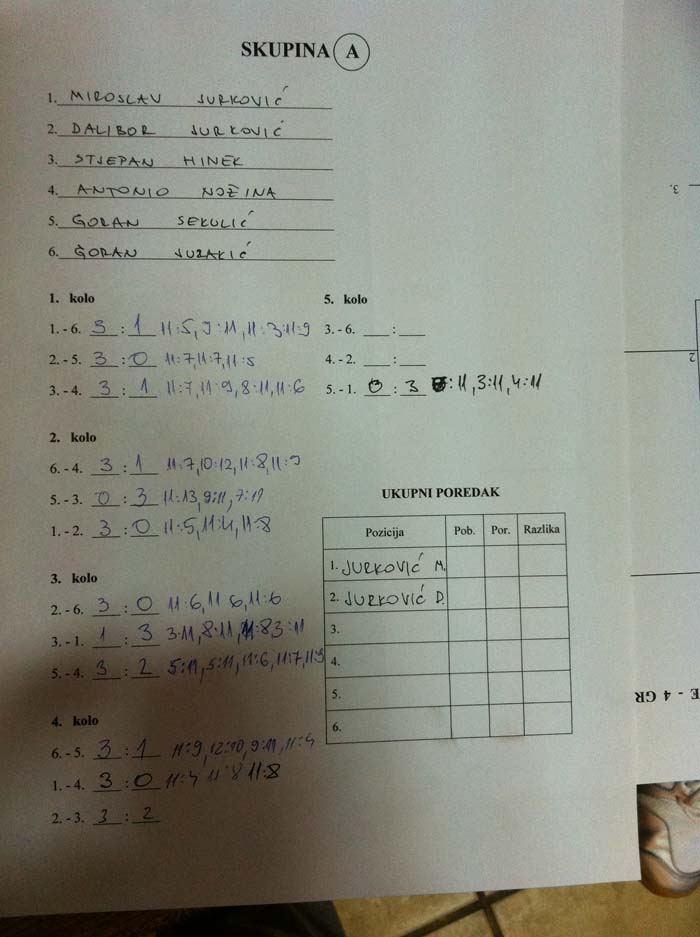 SKUPINA A
1. MIROSLAV JURKOVIĆ
2. DALIBOR JURKOVIĆ
3. STJEPAN HINEK
4. ANTONIO NOŽINA
5. GORAN SEKULIĆ
6. GORAN JUZAKIĆ
1. kolo
1. - 6. 3 : 1 11:5, 9:11, 11:3 11:9
2. - 5. 3 : 0 11:7, 11:7, 11:5
3. - 4. 3 : 1 11:7, 11:9, 8:11, 11:6
2. kolo
6. - 4. 3 : 1 11:7, 10:12, 11:8, 11:9
5. - 3. 0 : 3 11:13, 9:11, 7:11
1. - 2. 3 : 0 11:5, 11:4, 11:8
3. kolo
2. - 6. 3 : 0 11:6, 11 6, 11:6
3. - 1. 1 : 3 3:11, 8:11, 11:8 3:11
5. - 4. 3 : 2 5:11, 5:11, 11:6, 11:7, 11:9
4. kolo
6. - 5. 3 : 1 11:9, 12:10, 9:11, 11:4
1. - 4. 3 : 0 11:4 11:8 11:8
2. - 3. 3 : 2
5. kolo
3. - 6. ___ : ___
4. - 2. ___ : ___
5. - 1. 0 : 3 :11, 3:11, 4:11
UKUPNI POREDAK
Pozicija Pob. Por. Razlika
1. JURKOVIĆ M.
2. JURKOVIĆ D.
3.
4.
5.
6.
3.
2
E - 4 GR